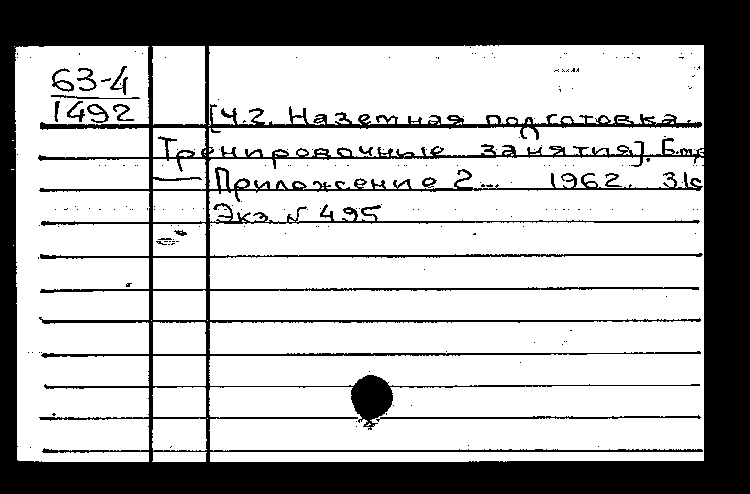 63-4
1492
[Ч.2. Наземная подготовка.
Тренировочные занятия].
Приложение 2... 1962. 31с
Экз. № 495